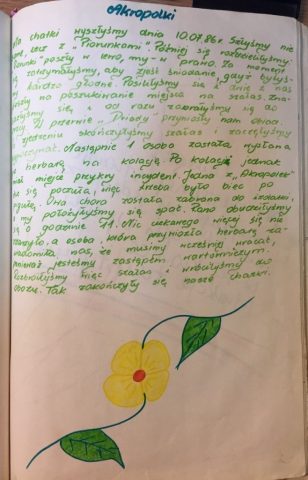 Akropolki
Na chatki wyszłyśmy dnia 10.07.86r. Szłyśmy nie
lecz z „Piorunkami”. Później się rozdzieliłyśmy:
Piorunki poszły w lewo, my – w prawo. Za moment
zatrzymałyśmy, aby zjeść śniadanie, gdyż byłyś-
my bardzo głodne. Posiliłyśmy się i dwie z nas
poszły na poszukiwanie miejsca na szałas.
się i od razu zabrałyśmy się do
W przerwie przyniosły nam obiad.
zjedzeniu skończyłyśmy szałas i zaczęłyśmy
Następnie 1 osoba została wysłana
herbatę na kolację. Po kolacji jednak
miejsce przykry incydent. Jedna z „Akropolek”
się poczuła, więc trzeba było biec po
Ona chora została zabrana do izolatki,
my położyłyśmy się spać. Rano obudziłyśmy
o godzinie Nic ciekawego więcej się nie
a osoba, która przyniosła herbatę
nas, że musimy wcześniej wracać,
jesteśmy zastępem wartowniczym.
więc szałas i wróciłyśmy do
obozu. Tak zakończyły się nasze chatki.